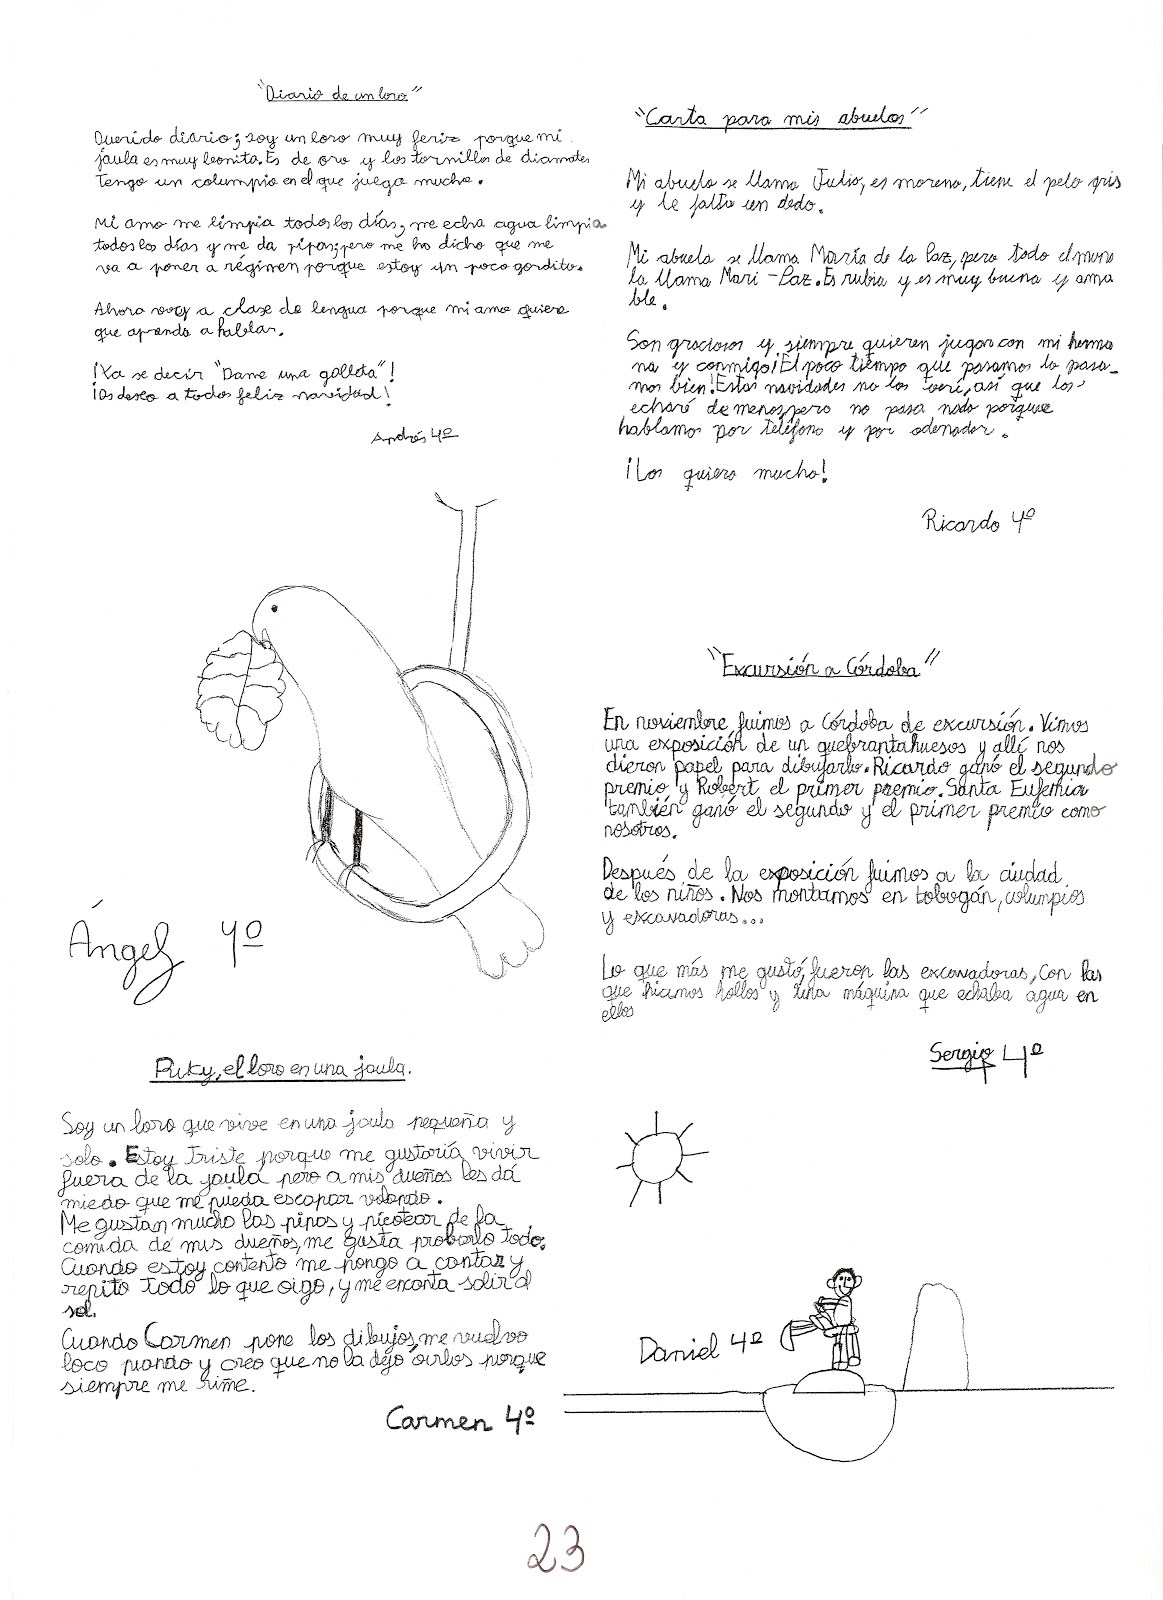 "Diario de un loro"
Querido diario; soy un loro muy feriz porque mi
jaula es muy bonita. Es de oro y los tornillos de diamates
Tengo un columpio en el que juega mucho.
Mi amo me limpia todos los días, me echa agua limpia
todos los días y me da pipas; pero me ha dicho que me
va a poner a régimen porque estoy un poco gordito.
Ahora voy a clase de lengua porque mi amo quiere
que aprenda a hablar.
¡Ya se decir "Dame una galleta"!
¡Os deseo a todos feliz navidad!
Andrés 4º
"Carta para mis abuelos"
Mi abuelo se llama Julio, es moreno, tiene el pelo gris
y le falta un dedo.
Mi abuela se llama María de la Paz, pero todo el muno
la llama Mari-Paz. Es rubia y es muy buena y ama
ble.
Son graciosos y siempre quieren jugar con mi herma
na y conmigo ¡El poco tiempo que pasamos lo pasa-
mos bien! Estas navidades no los veré, así que los
echaré de menos, pero no pasa nada porque
hablamos por teléfono y por odenador.
¡Los quiero mucho!
Ricardo 4º
"Excursión a Córdoba"
En noviembre fuimos a Córdoba de excursión. Vimos
una exposición de un quebrantahuesos y allí nos
dieron papel para dibujarlo. Ricardo ganó el segundo
premio y Robert el primer premio. Santa Eufemia
también ganó el segundo y el primer premio como
nosotros.
Después de la exposición fuimos a la ciudad
de los niños. Nos montamos en tobogán, columpios
y excavadoras...
Lo que más me gustó, fueron las excavadoras, con las
que hicimos hollos y una máquina que echaba agua en
ellos
Sergio 4º
Ángel 4º
Piky, el loro en una jaula.
Soy un loro que vive en una jaula pequeña y
solo. Estoy triste porque me gustaría vivir
fuera de la jaula pero a mis dueños les dá
miedo que me pueda escapar volando.
Me gustan mucho las pipas y picotear de la
comida de mis dueños, me gusta probarlo todo.
Cuando estoy contento me pongo a cantar y
repito todo lo que oigo, y me encanta salir al
sol.
Cuando Carmen pone los dibujos, me vuelvo
loco piando y creo que no la dejo oirlos porque
siempre me riñe.
Carmen 4º
Daniel 4º
23